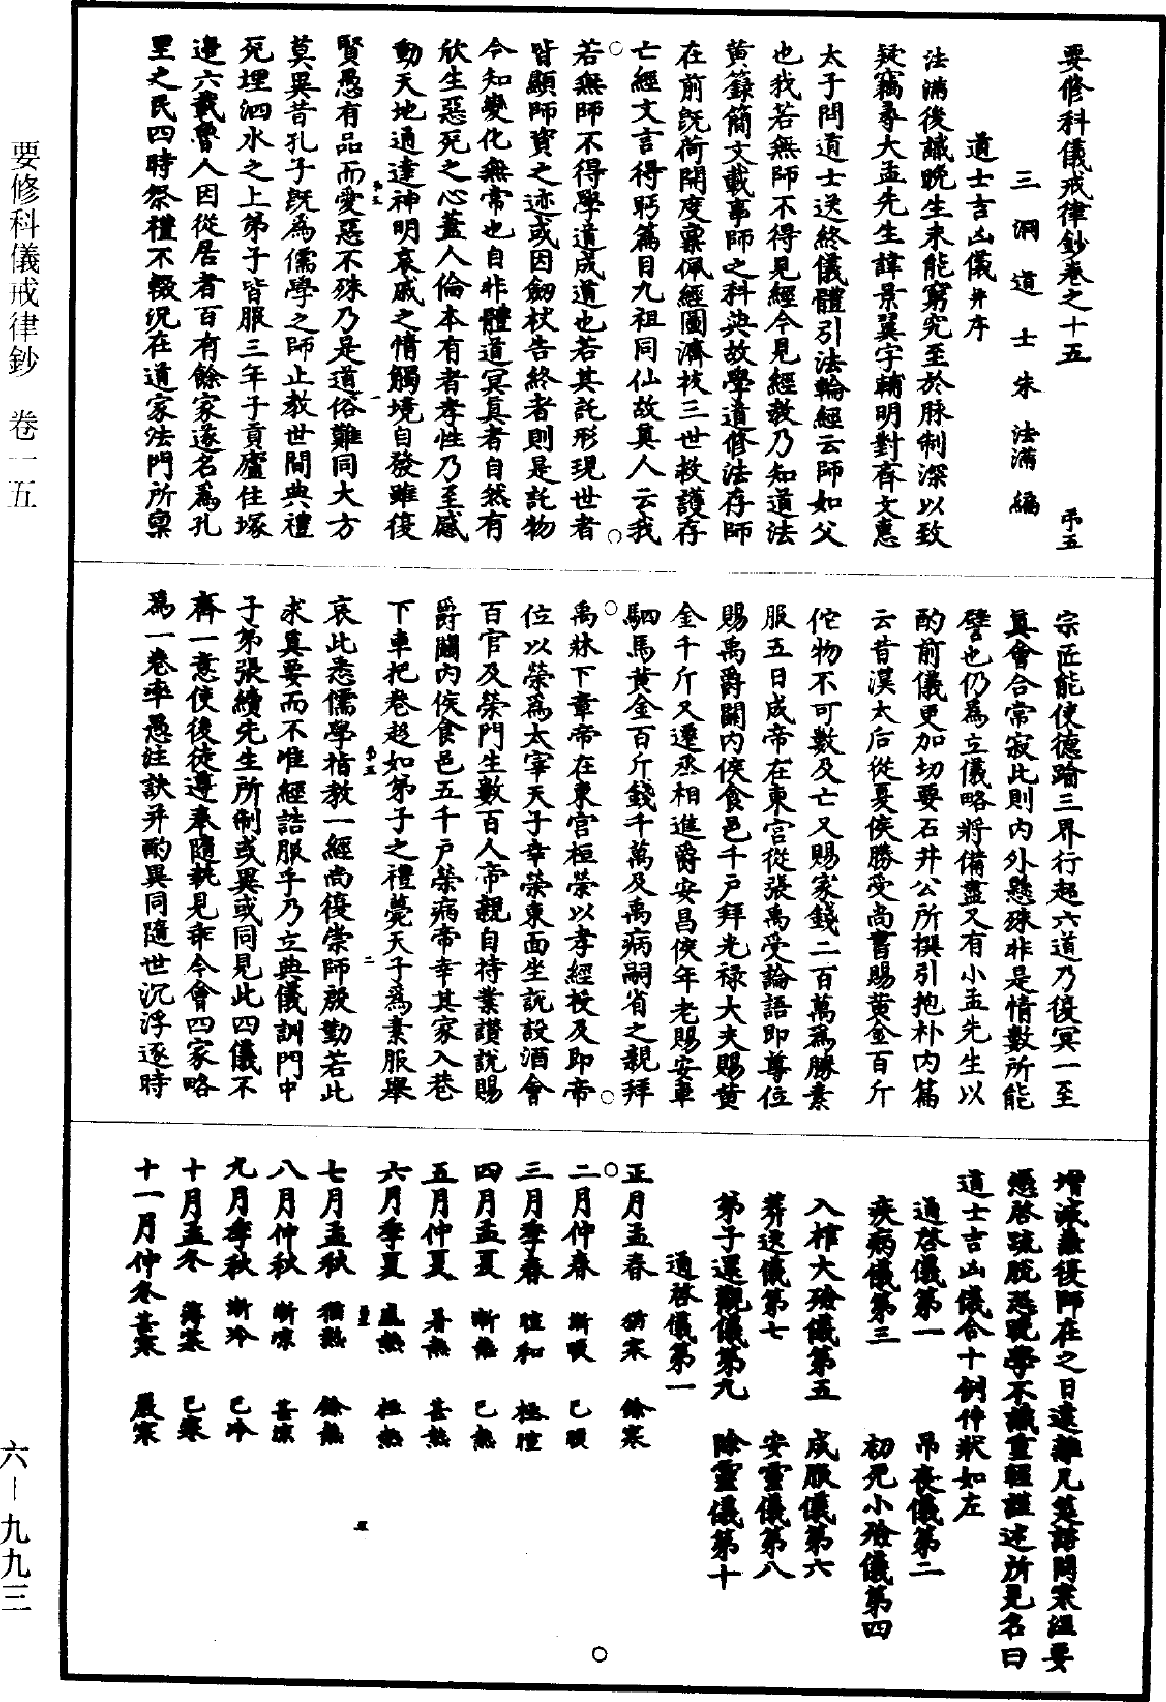 要修科儀戒律鈔卷之十五　弔五
三洞道士朱法滿編
道士吉凶儀并序
法滿後誠晚生未能窮究至於脉制深以致
疑竊尋大孟先生諱景翼字輔明對齊文惠
太子問道士送終儀體引法輪經云師如父
也我若無師不得見經今見經教乃知道法
黃籙簡文載事師之科矣故學道修法存師
在前既荷開度稟佩經圖濟拔三世救護存
亡經文言得眄篇目九祖同仙故真人云我
若無師不得學道成道也若其託形現世者
皆顯師資之迹或因劒杖告終者則是託物
今知變化無常也自非體道冥真者自然有
欣生惡死之心蓋人倫本有者孝性乃至感
動天地通達神明哀戚之情觸境自發雖復
賢愚有品而愛惡不殊乃是道俗難同大方
莫異昔孔子既為儒學之師止教世間典禮
死埋泗水之上弟子皆服三年子貢廬住塚
邊六載魯人因從居者百有餘家遂名為孔
里之民四時祭禮不輟況在道家法門所稟
宗匠能使德踰三界行起六道乃復冥一至
真會合常寂此則內外懸殊非是情數所能
譬也仍為立儀略將備盡又有小孟先生以
酌前儀更加切要石井公所撰引抱朴內篇
云昔漢太后從夏侯勝受尚書賜黃金百斤
佗物不可數及亡又賜家錢二百萬為勝素
服五日成帝在東宮從張禹受論語即尊位
賜禹爵關內侯食邑千戶拜光祿大夫賜黃
金千斤又遷丞相進爵安昌侯年老賜安車
駟馬黃金百斤錢千萬及禹病嗣省之親拜
禹牀下章帝在東宮桓榮以孝經授及即帝
位以榮為太宰天子幸榮東面坐說設酒會
百官及榮門生數百人帝親自持業讚說賜
爵關內侯食邑五千戶榮病帝幸其家入巷
下車把卷趍如弟子之禮薨天子為素服舉
哀此悉儒學指教一經尚復崇師殷勤若此
求真要而不准經詰服乎乃立典儀訓門中
子弟張續先生所制或異或同見此四儀不
齊一意使後徒尊奉隨執見乖今會四家略
為一卷率愚注訣并酌異同隨世沉浮逐時
增減蓋復師在之日遠離凡筵諮問寒溫要
憑啓疏脫恐晚學不識重輕謹述所見名曰
道士吉凶儀合十例件狀如左
通啓儀第一　弔喪儀第二
疾病儀第三　初死小殮儀第四
入棺大殮儀第五　成服儀第六
葬送儀第七　安靈儀第八
弟子還觀儀第九　除靈儀第十
通啓儀第一
正月孟春　猶寒　餘寒
二月仲春　漸暖　已暖
三月季春　暄和　極暄
四月孟夏　漸熱　已熱
五月仲夏　暑熱　甚熱
六月季夏　盛熱　極熱
七月孟秋　猶熱　餘熱
八月仲秋　漸涼　甚涼
九月季秋　漸冷　已冷
十月孟冬　薄寒　已寒
十一月仲冬　甚寒　嚴寒
要修科儀戒律鈔　卷一五
六－九九三